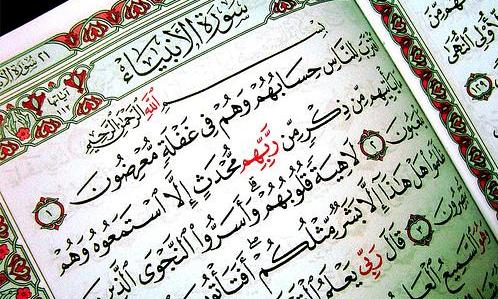 سورة الان ٢١
سُورَةُ الأَنبِيَاءِ
آياتها
١١٢
بِسْمِ اللَّهِ الرَّحْمَٰنِ الرَّحِيمِ
اقْتَرَبَ لِلنَّاسِ حِسَابُهُمْ وَهُمْ فِي غَفْلَةٍ مُّعْرِضُونَ ١
يَأْتِيهِم مِّن ذِكْرٍ مِّن رَّبِّهِم مُّحْدَثٍ إِلَّا اسْتَمَعُوهُ وَهُمْ
يَلْعَبُونَ ٢ لَاهِيَةً قُلُوبُهُمْ وَأَسَرُّوا النَّجْوَى الَّذِينَ
ظَلَمُوا هَلْ هَٰذَا إِلَّا بَشَرٌ مِّثْلُكُمْ أَفَتَأْتُونَ
تُبْصِرُونَ ٣ قَالَ رَبِّي يَعْلَمُ
السَّمِيعُ
هُم مِّن
النُّهَى